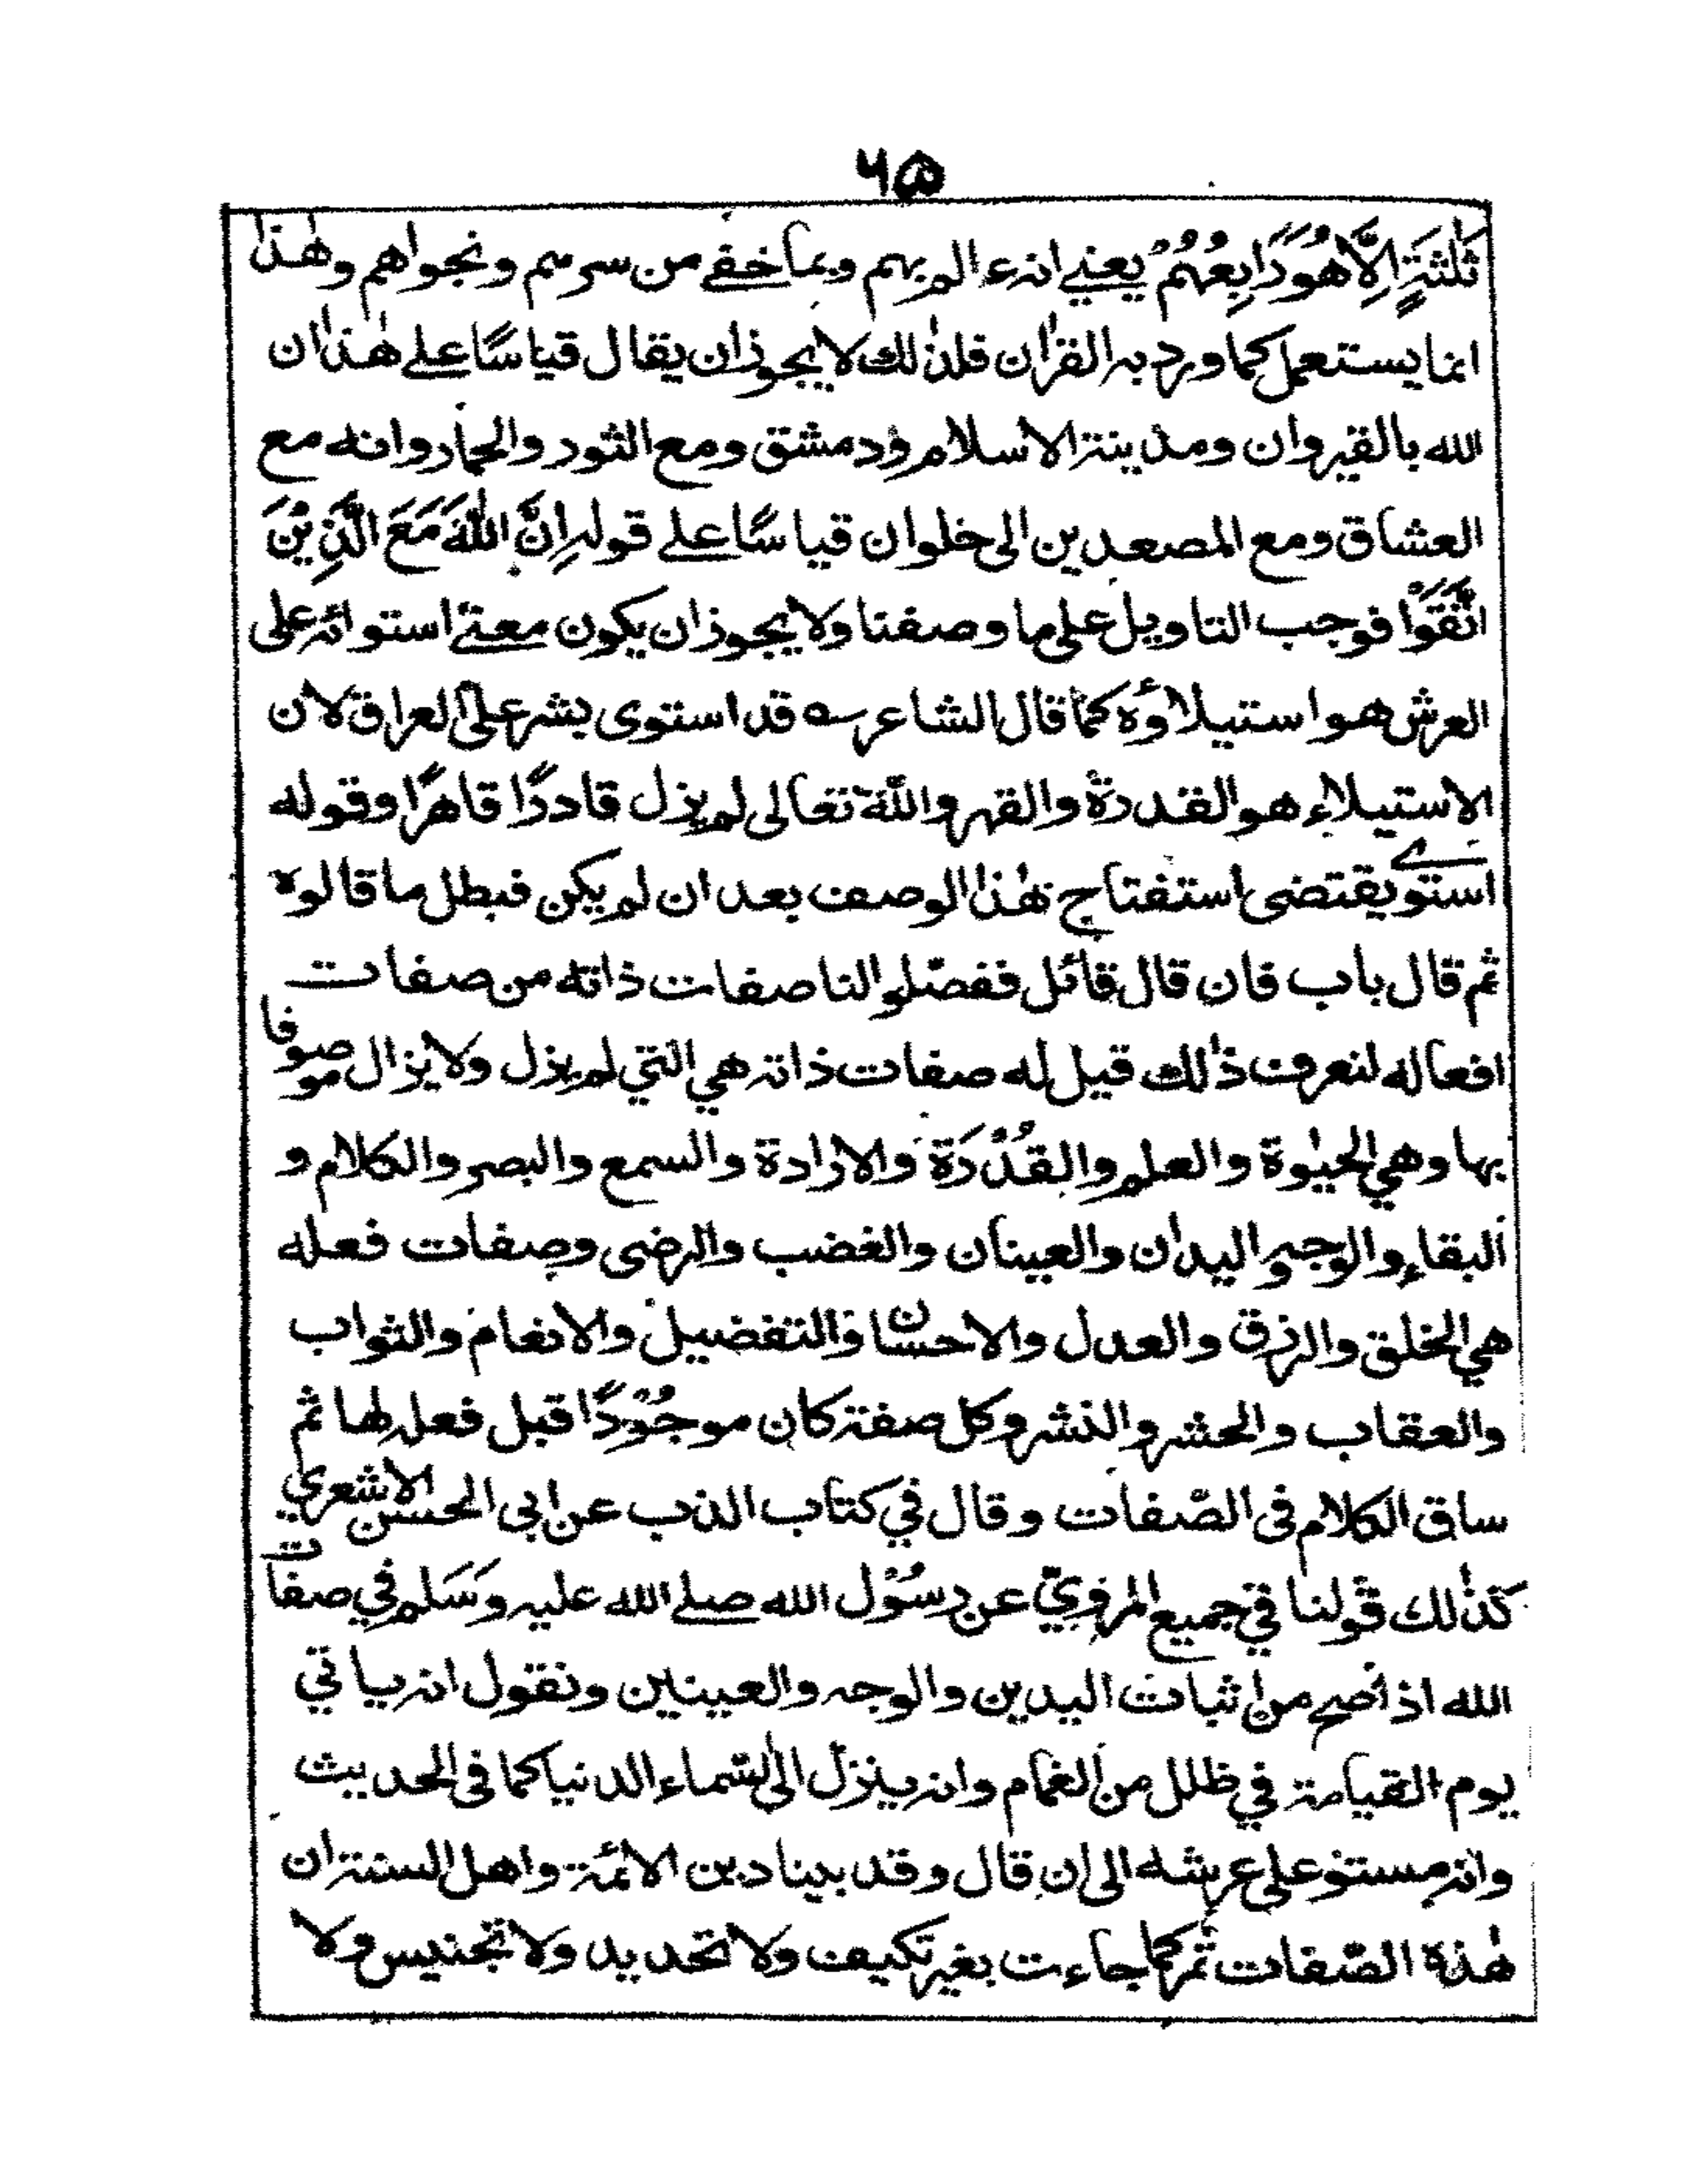 ٦٥
ثَلٰثَةٍ اِلَّا هُوَ رَابِعُهُمْ يعني انه عالم بهم وبما خفے من سرهم ونجواهم وهٰذا
انما يستعمل كما ورد به القرٰان فلذٰلك لا يجوز ان يقال قياسًا علے هٰذا ان
الله بالقيروان ومدينة الاسلام ودمشق ومع الثور والحمار وانه مع
العشاق ومع المصعدين الى حلوان قياسًا علے قوله اِنَّ اللّٰهَ مَعَ الَّذِيْنَ
اتَّقَوْا فوجب التاويل على ما وصفنا ولا يجوز ان يكون معنے استوائه على
العرش هو استيلاؤه كما قال الشاعر ؎ قد استوى بشر على العراق لان
الاستيلاء هو القدرة والقهر والله تعالى لم يزل قادرًا قاهرًا وقوله
استوے يقتضى استفتاح هٰذا الوصف بعد ان لم يكن فبطل ما قالوه
ثم قال باب فان قال قائل ففصلوا لنا صفات ذاته من صفات
افعاله لنعرف ذٰلك قيل له صفات ذاته هي التي لم يزل ولا يزال موصوفا
بها وهي الحيٰوة والعلم والقُدْرَة والارادة والسمع والبصر والكلام و
البقاء والوجه واليدان والعينان والغضب والرضى وصفات فعله
هي الخلق والرزق والعدل والاحسان والتفضيل والانعام والثواب
والعقاب والحشر والنشر وكل صفة كان موجُوْدًا قبل فعله لها ثم
ساق الكلام فى الصّفات وقال في كتاب الذب عن ابى الحسن الاشعري
كذٰلك قولنا في جميع المروي عن رسُوْل الله صلے الله عليه وَسَلم في صفات
الله اذا صح من اثبات اليدين والوجه والعينين ونقول انه ياتي
يوم القيامة في ظلل من الغمام وانه ينزل الى السّماء الدنيا كما فى الحديث
وانه مستو على عرشه الى ان قال وقد بينا دين الائمة واهل السنة ان
هٰذه الصّفات تمر كما جاءت بغير تكييف ولا تحديد ولا تجنيس ولا